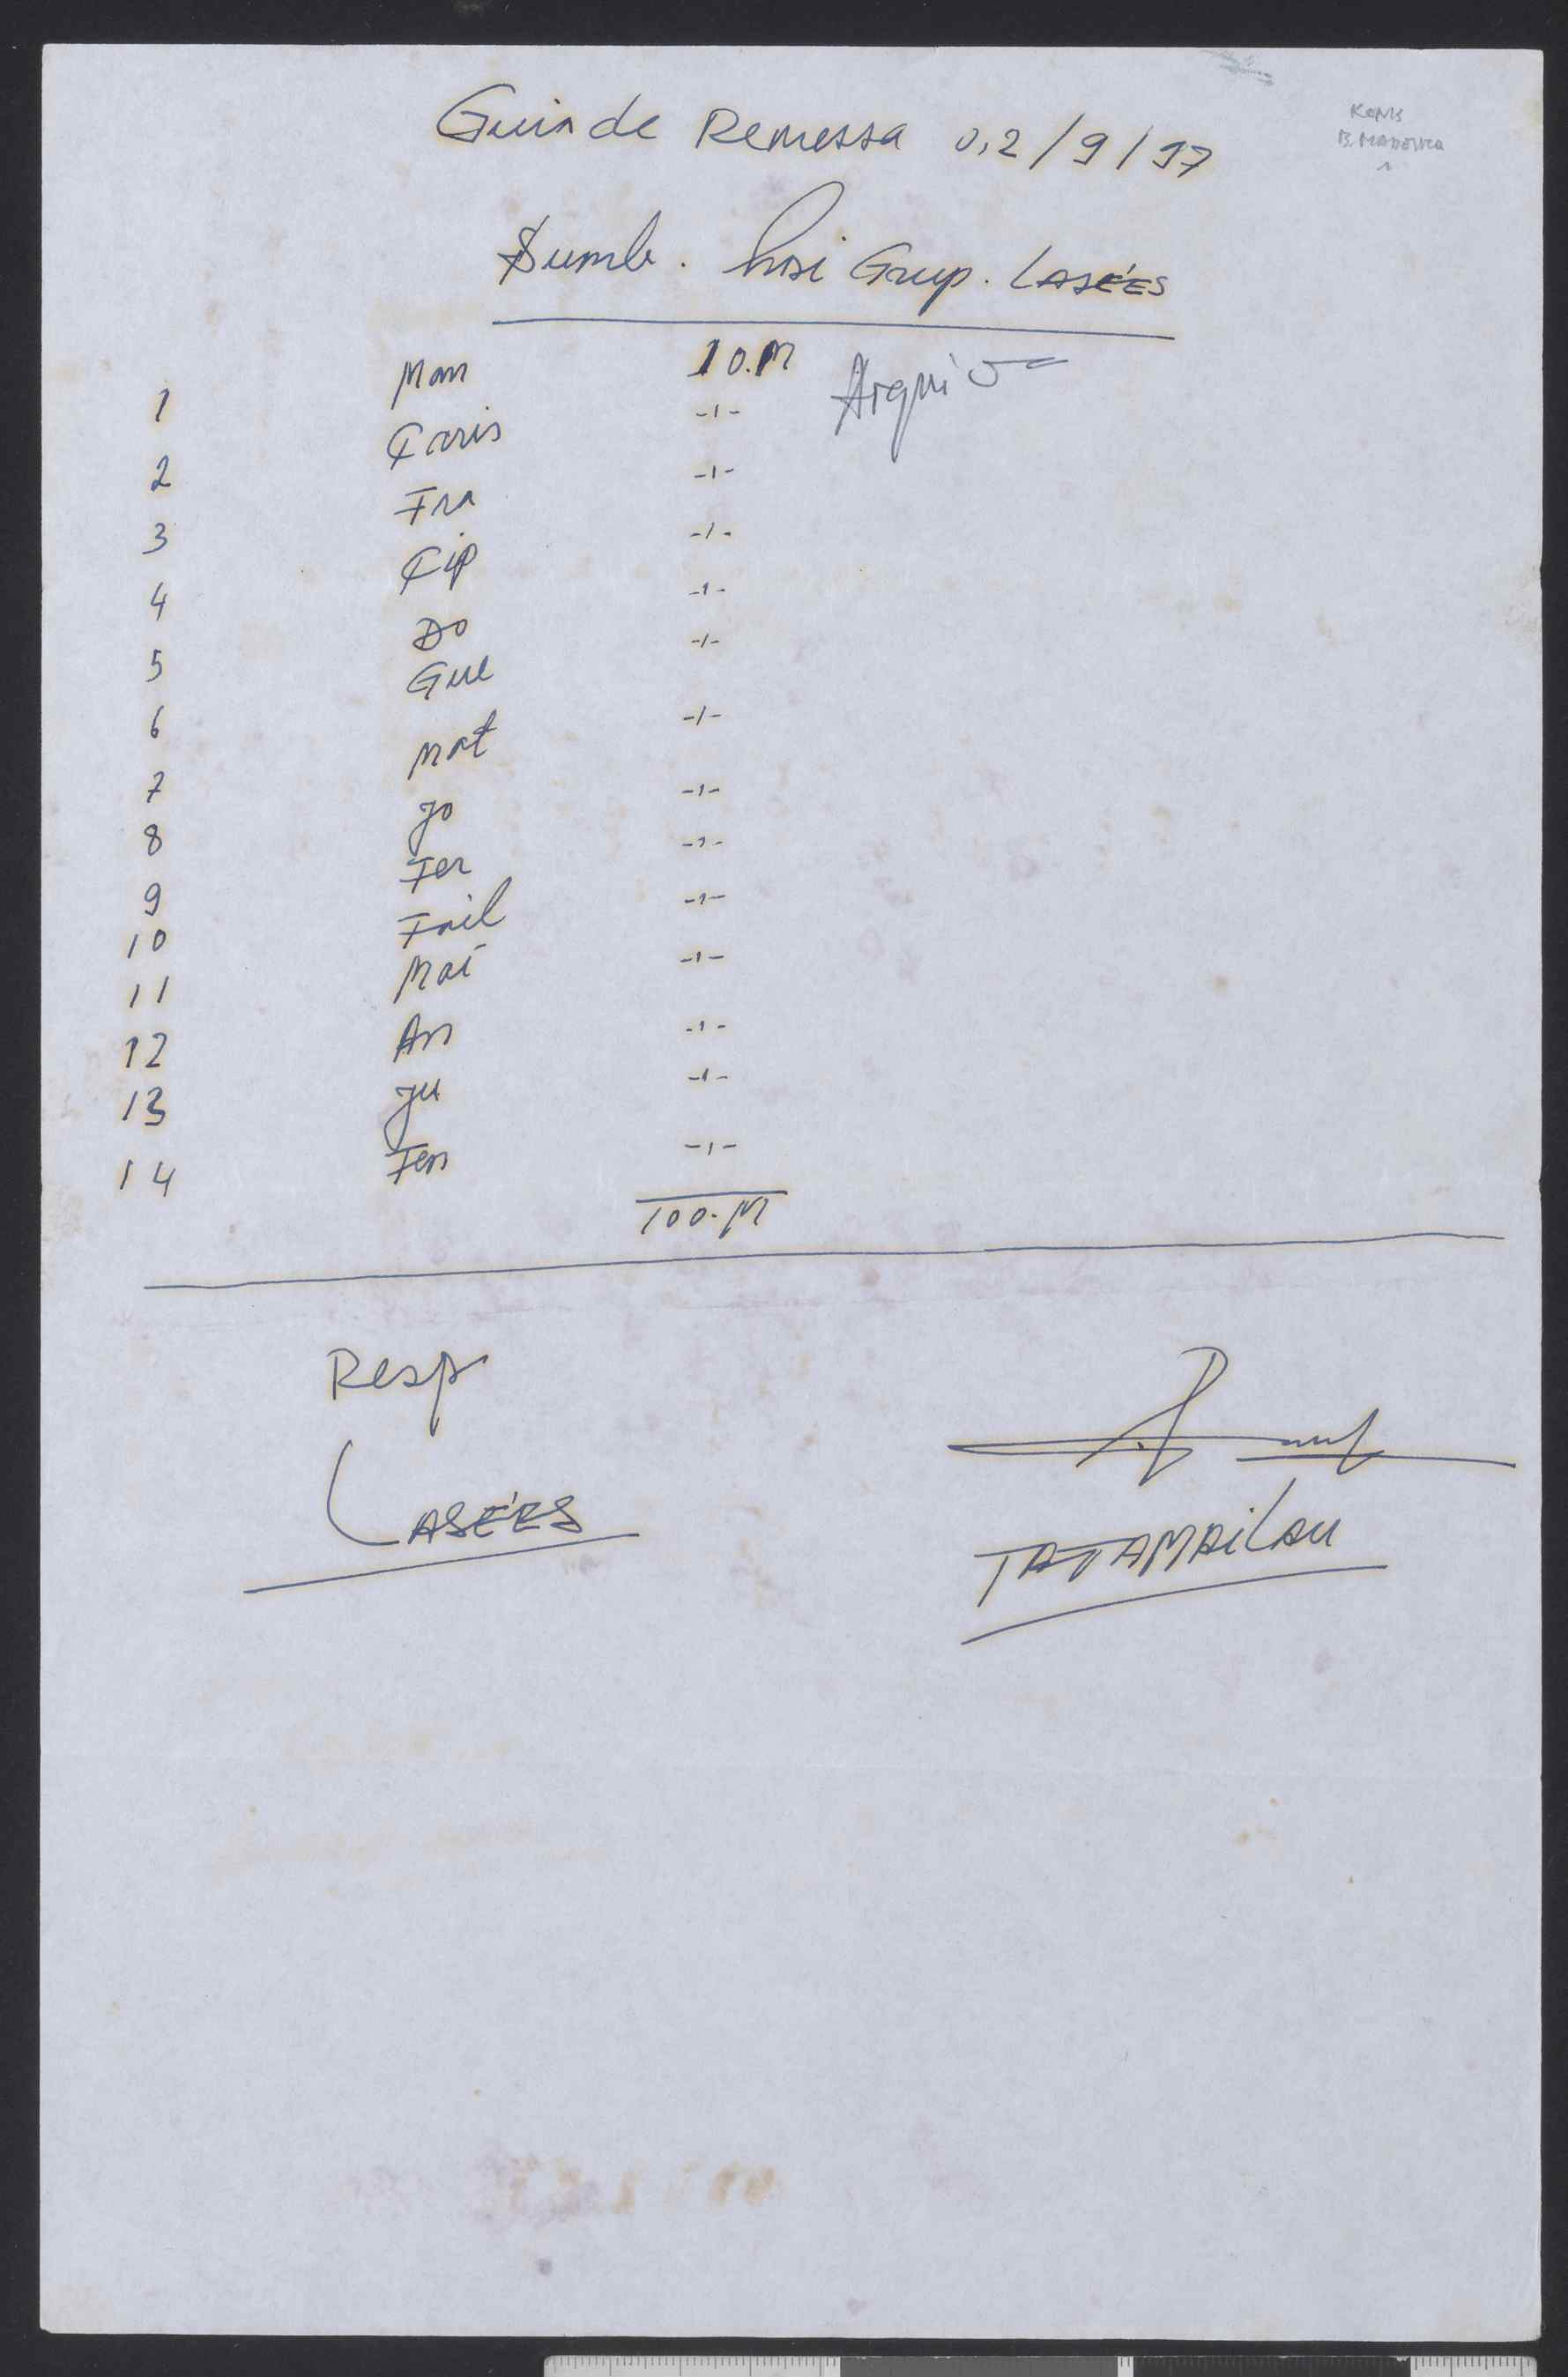 Guia de Remessa 0,2/9/97
KONIS
B. MADEIRA
Sumb. hosi Grup. LASÉES
1 Man 10.M Arquivo
2 Caris -1-
3 Fra -1-
4 Cip -1-
5 Do -1-
6 Gue -1-
7 Mat -1-
8 Jo -1-
9 Fer -1-
10 Frail -1-
11 Mai -1-
12 An -1-
13 Ju -1-
14 Fen -1-
100.M
Resp
LASÉES
TATAMAILAU